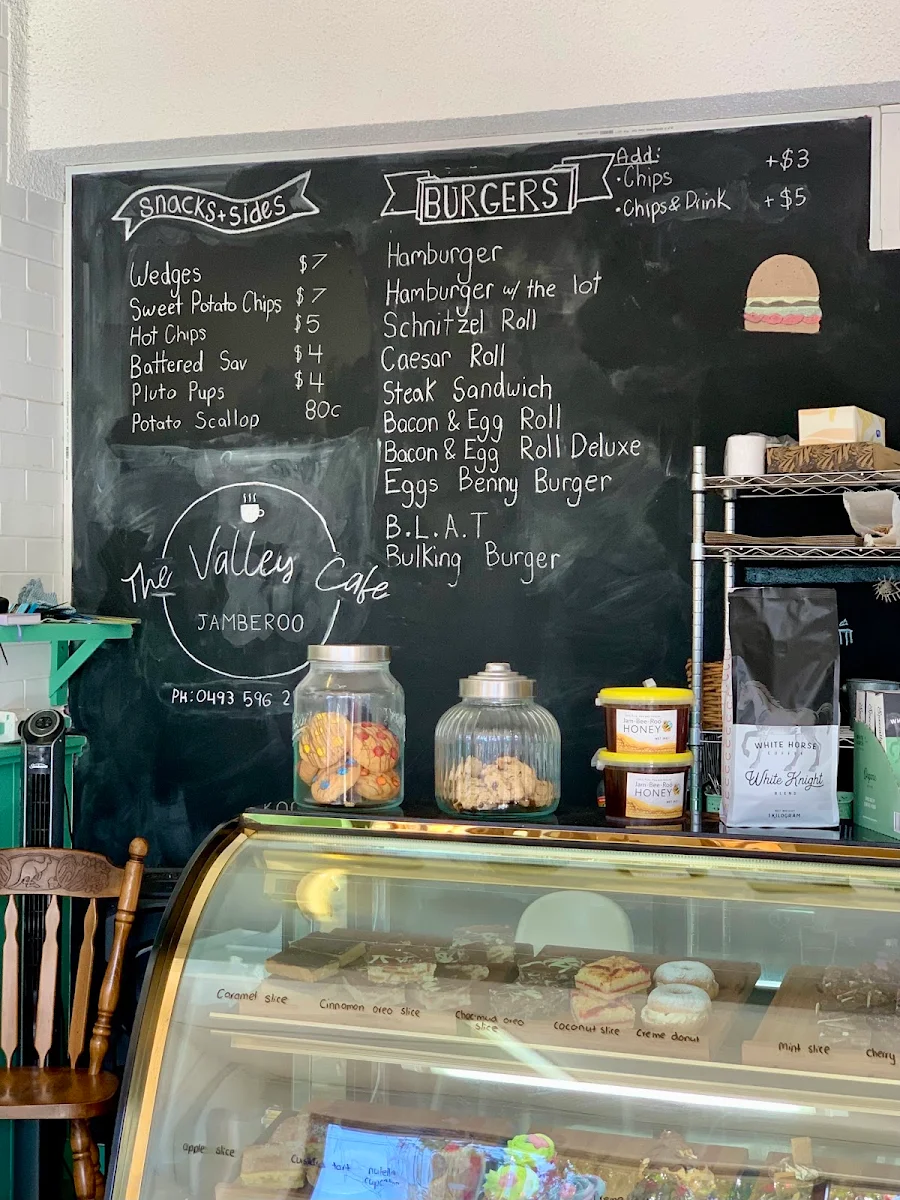 snacks + sides
Wedges $7
Sweet Potato Chips $7
Hot Chips $5
Battered Sav $4
Pluto Pups $4
Potato Scallop 80c
The Valley Cafe
JAMBEROO
PH: 0493 596 2
BURGERS
Hamburger
Hamburger w/ the lot
Schnitzel Roll
Caesar Roll
Steak Sandwich
Bacon & Egg Roll
Bacon & Egg Roll Deluxe
Eggs Benny Burger
B.L.A.T
Bulking Burger
Add:
• Chips +$3
• Chips & Drink +$5
Jam-Bee-Roo
HONEY
Jam-Bee-Roo
HONEY
WHITE HORSE
COFFEE
White Knight
BLEND
1 KILOGRAM
Caramel slice
Cinnamon oreo slice
Choc mud oreo
slice
Coconut slice
Creme donut
Mint slice
Cherry
apple slice
tart
nutella